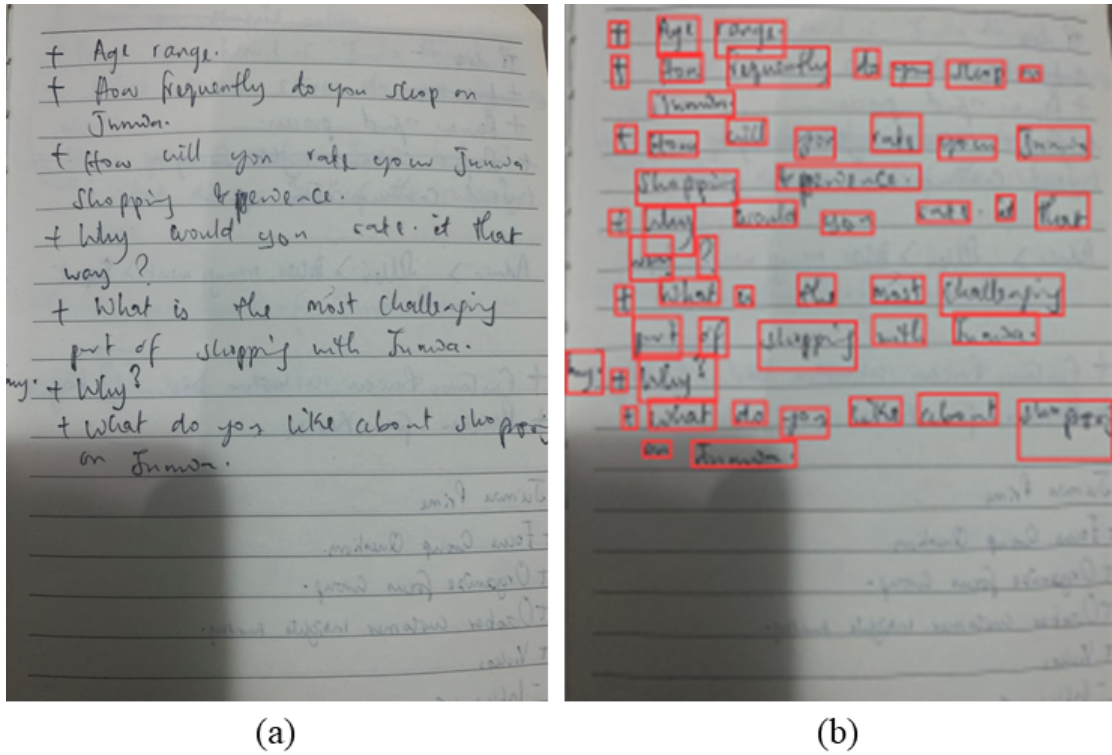 + Age range.
+ How frequently do you shop on
Jumia.
+ How will you rate your Jumia
shopping experience.
+ Why would you rate it that
way?
+ What is the most challenging
part of shopping with Jumia.
ny. + Why?
+ What do you like about shopping
on Jumia.
+ Age range.
+ How frequently do you shop on
Jumia.
+ How will you rate your Jumia
shopping experience.
+ Why would you rate it that
way?
+ What is the most challenging
part of shopping with Jumia.
ny. + Why?
+ What do you like about shopping
on Jumia.
Jumia Prime
Focus Group Question
(a)
(b)